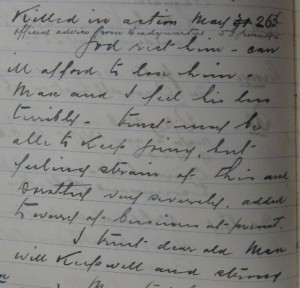 Killed in action May 26th
official advice from Headquarters,
God rest him - can
ill afford to lose him -
Mase and I feel his loss
terribly - trust may be
able to keep going, but
feeling strain of this and
Dorothy very severely, added
to worry of business at present.
I trust dear old Mase
will keep well and strong